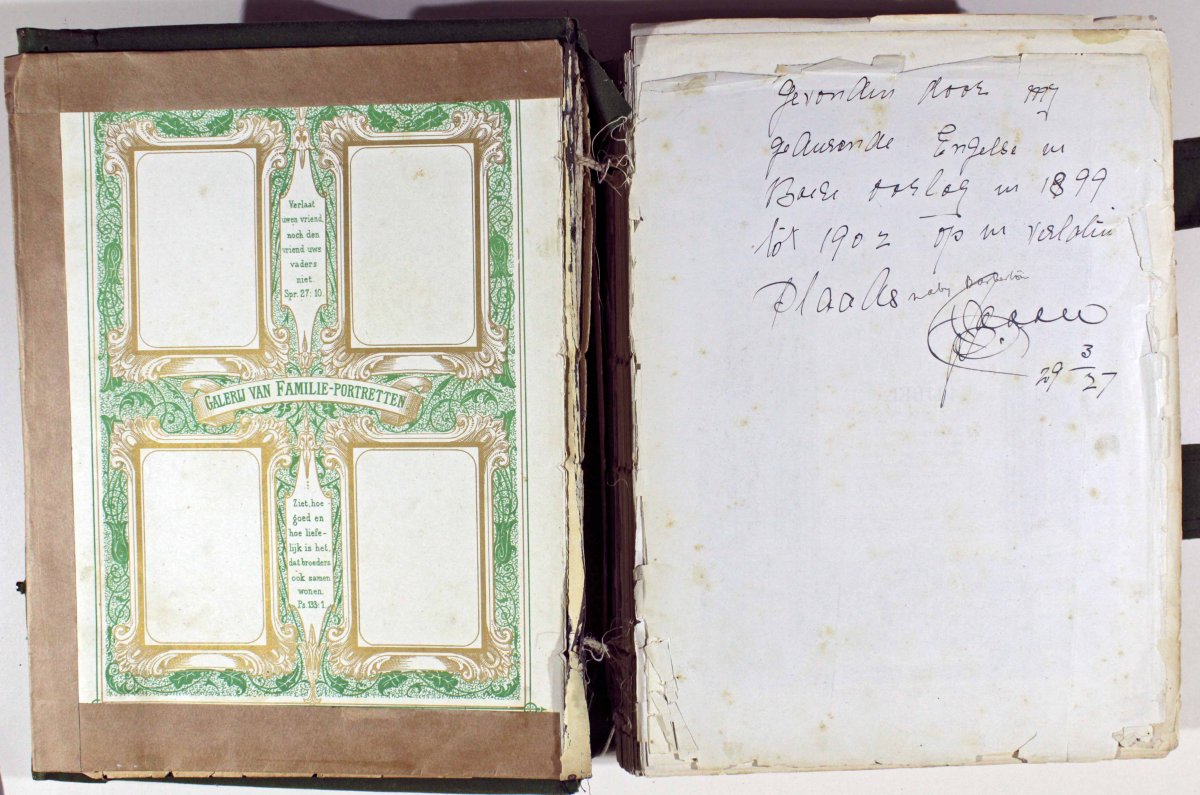 Verlaat
uwen vriend,
noch den
vriend uws
vaders
niet.
Spr. 27: 10.
GALERIJ VAN FAMILIE-PORTRETTEN
Ziet, hoe
goed en
hoe liefe-
lijk is het,
dat broeders
ook samen
wonen.
Ps. 133: 1.
Gevonden door my
gedurende Engelse en
Boere oorlog in 1899
tot 1902 op 'n verlatin
Plaas naby
29 3/27